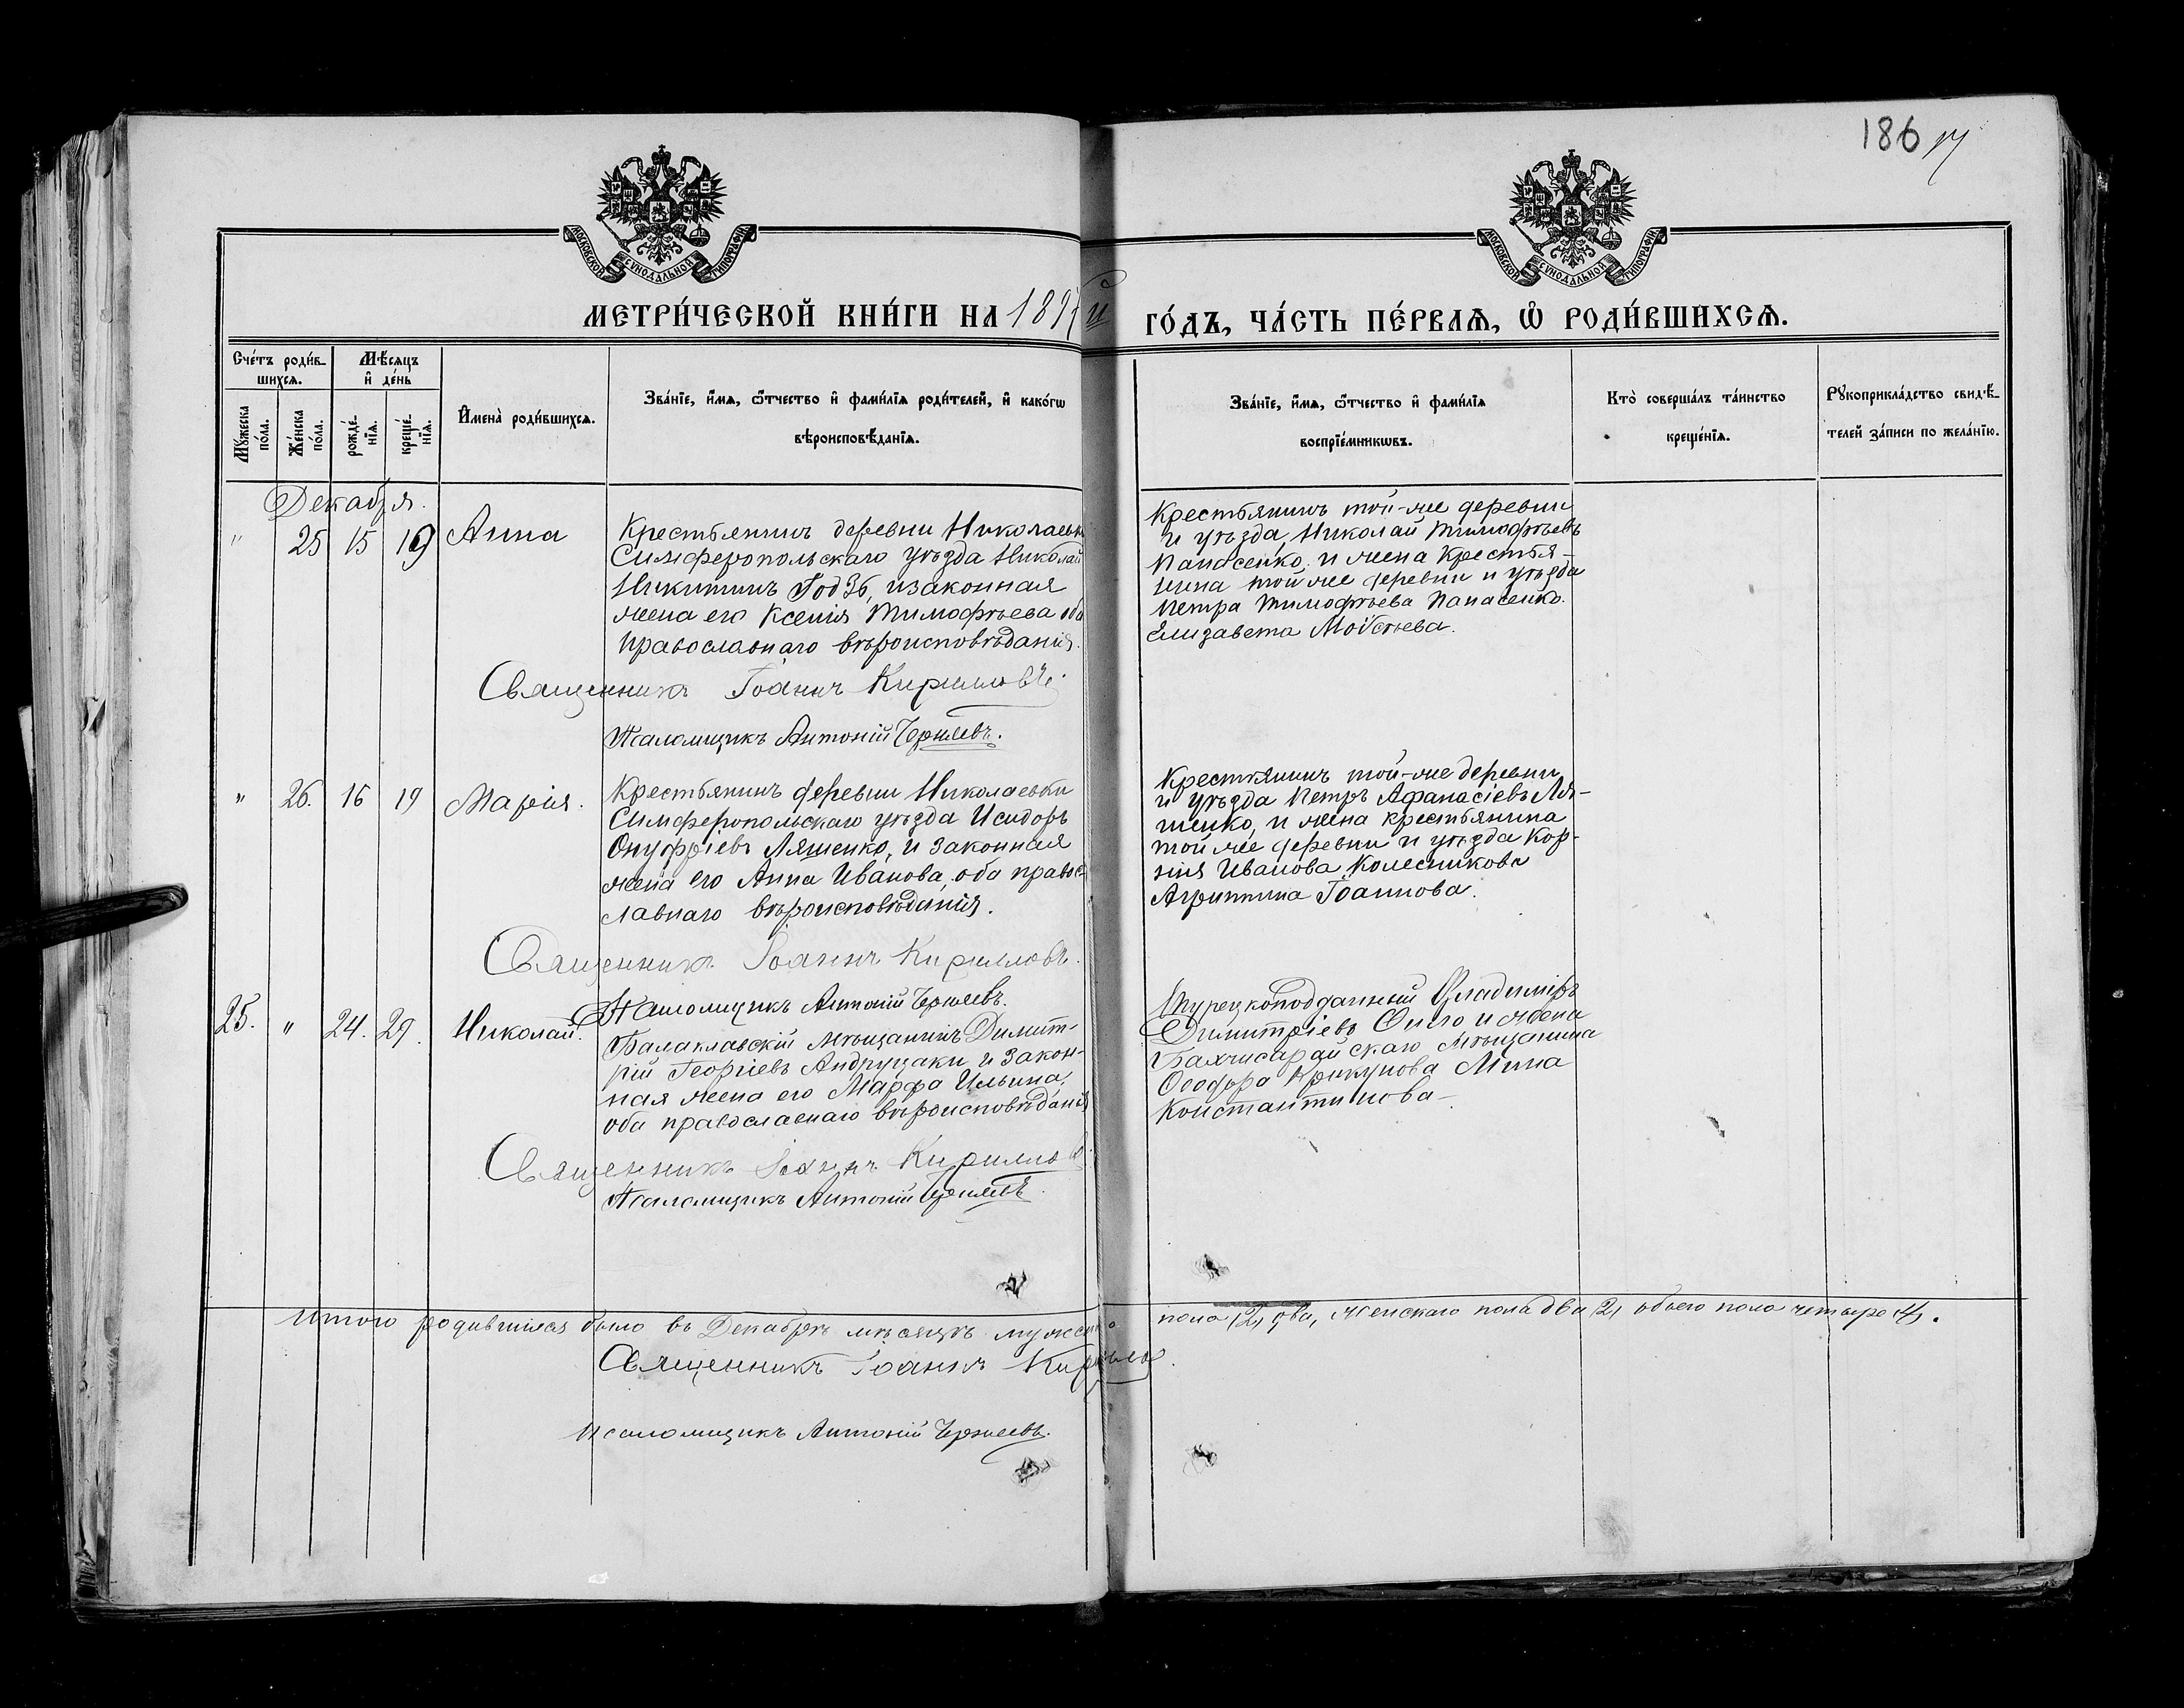 186
МОСКОВСКОЙ СУНОДАЛЬНОЙ ТИПОГРАФІИ
МОСКОВСКОЙ СУНОДАЛЬНОЙ ТИПОГРАФІИ
МЕТРИ́ЧЕСКОЙ КНИ́ГИ НА 1897й ГО́ДЪ, ЧА́СТЬ ПЕ́РВАѦ, Ѡ РОДИ́ВШИХСѦ.
Сче́тъ роди́в-
шихсѧ.
Мѣ́сѧцъ
и де́нь
Мꙋжеска по́ла.
Же́нска по́ла.
рожде́-
нїѧ.
креще́-
нїѧ.
Имена̀ роди́вшихсѧ.
Зва́нїе, и́мѧ, ѻ́тчество и фами́лїѧ роди́телей, и како́гѡ
вѣроисповѣ́данїѧ.
Зва́нїе, и́мѧ, ѻ́тчество и фами́лїѧ
воспрїе́мникѡвъ.
Кто̀ соверша́лъ та́инство
креще́нїѧ.
Рꙋкоприкла́дство свидѣ́-
телей за́писи по жела́нїю.
Декабря.
" 25 15 19 Анна
Крестьянинъ деревни Николаевки
Симферопольскаго уѣзда Николай
Никитинъ и законная
жена его Ксенія Тимофѣева оба
православнаго вѣроисповѣданія.
Священникъ Іоаннъ Кирилловъ.
Псаломщикъ Антоній
Крестьянинъ той-же деревни
и уѣзда, Николай Тимофѣевъ
Панасенко, и жена крестья-
нина той же деревни и уѣзда
Петра Тимофѣева Панасенко.
Елизавета Моѵсѣева.
" 26. 16 19 Марія.
Крестьянинъ деревни Николаевки
Симферопольскаго уѣзда Исидоръ
Онуфріевъ Ляшенко, и законная
жена его Анна Иванова, оба право-
славнаго вѣроисповѣданія.
Священникъ Іоаннъ Кирилловъ.
Псаломщикъ Антоній
Крестьянинъ той-же деревни
и уѣзда Петръ Афанасіевъ Ля-
шенко, и жена крестьянина
той же деревни и уѣзда Кор-
нія Иванова Колесникова
Агриппина Іоаннова.
25. " 24. 29. Николай.
Балаклавскій мѣщанинъ Димит-
рій Георгіевъ Андруцаки и закон-
ная жена его Марфа Ильина,
оба православнаго вѣроисповѣданія
Священникъ Іоаннъ Кирилловъ
Псаломщикъ Антоній
Турецкоподданный Владиміръ
Димитріевъ и жена
Бахчисарайскаго мѣщанина
Ѳеодора Арикупова Анна
Константинова.
Итого родившихся было въ Декабрѣ мѣсяцѣ мужскаго пола 2, два, женскаго пола два 2, обоего пола четыре 4.
Священникъ Іоаннъ Кирилловъ.
Псаломщикъ Антоній